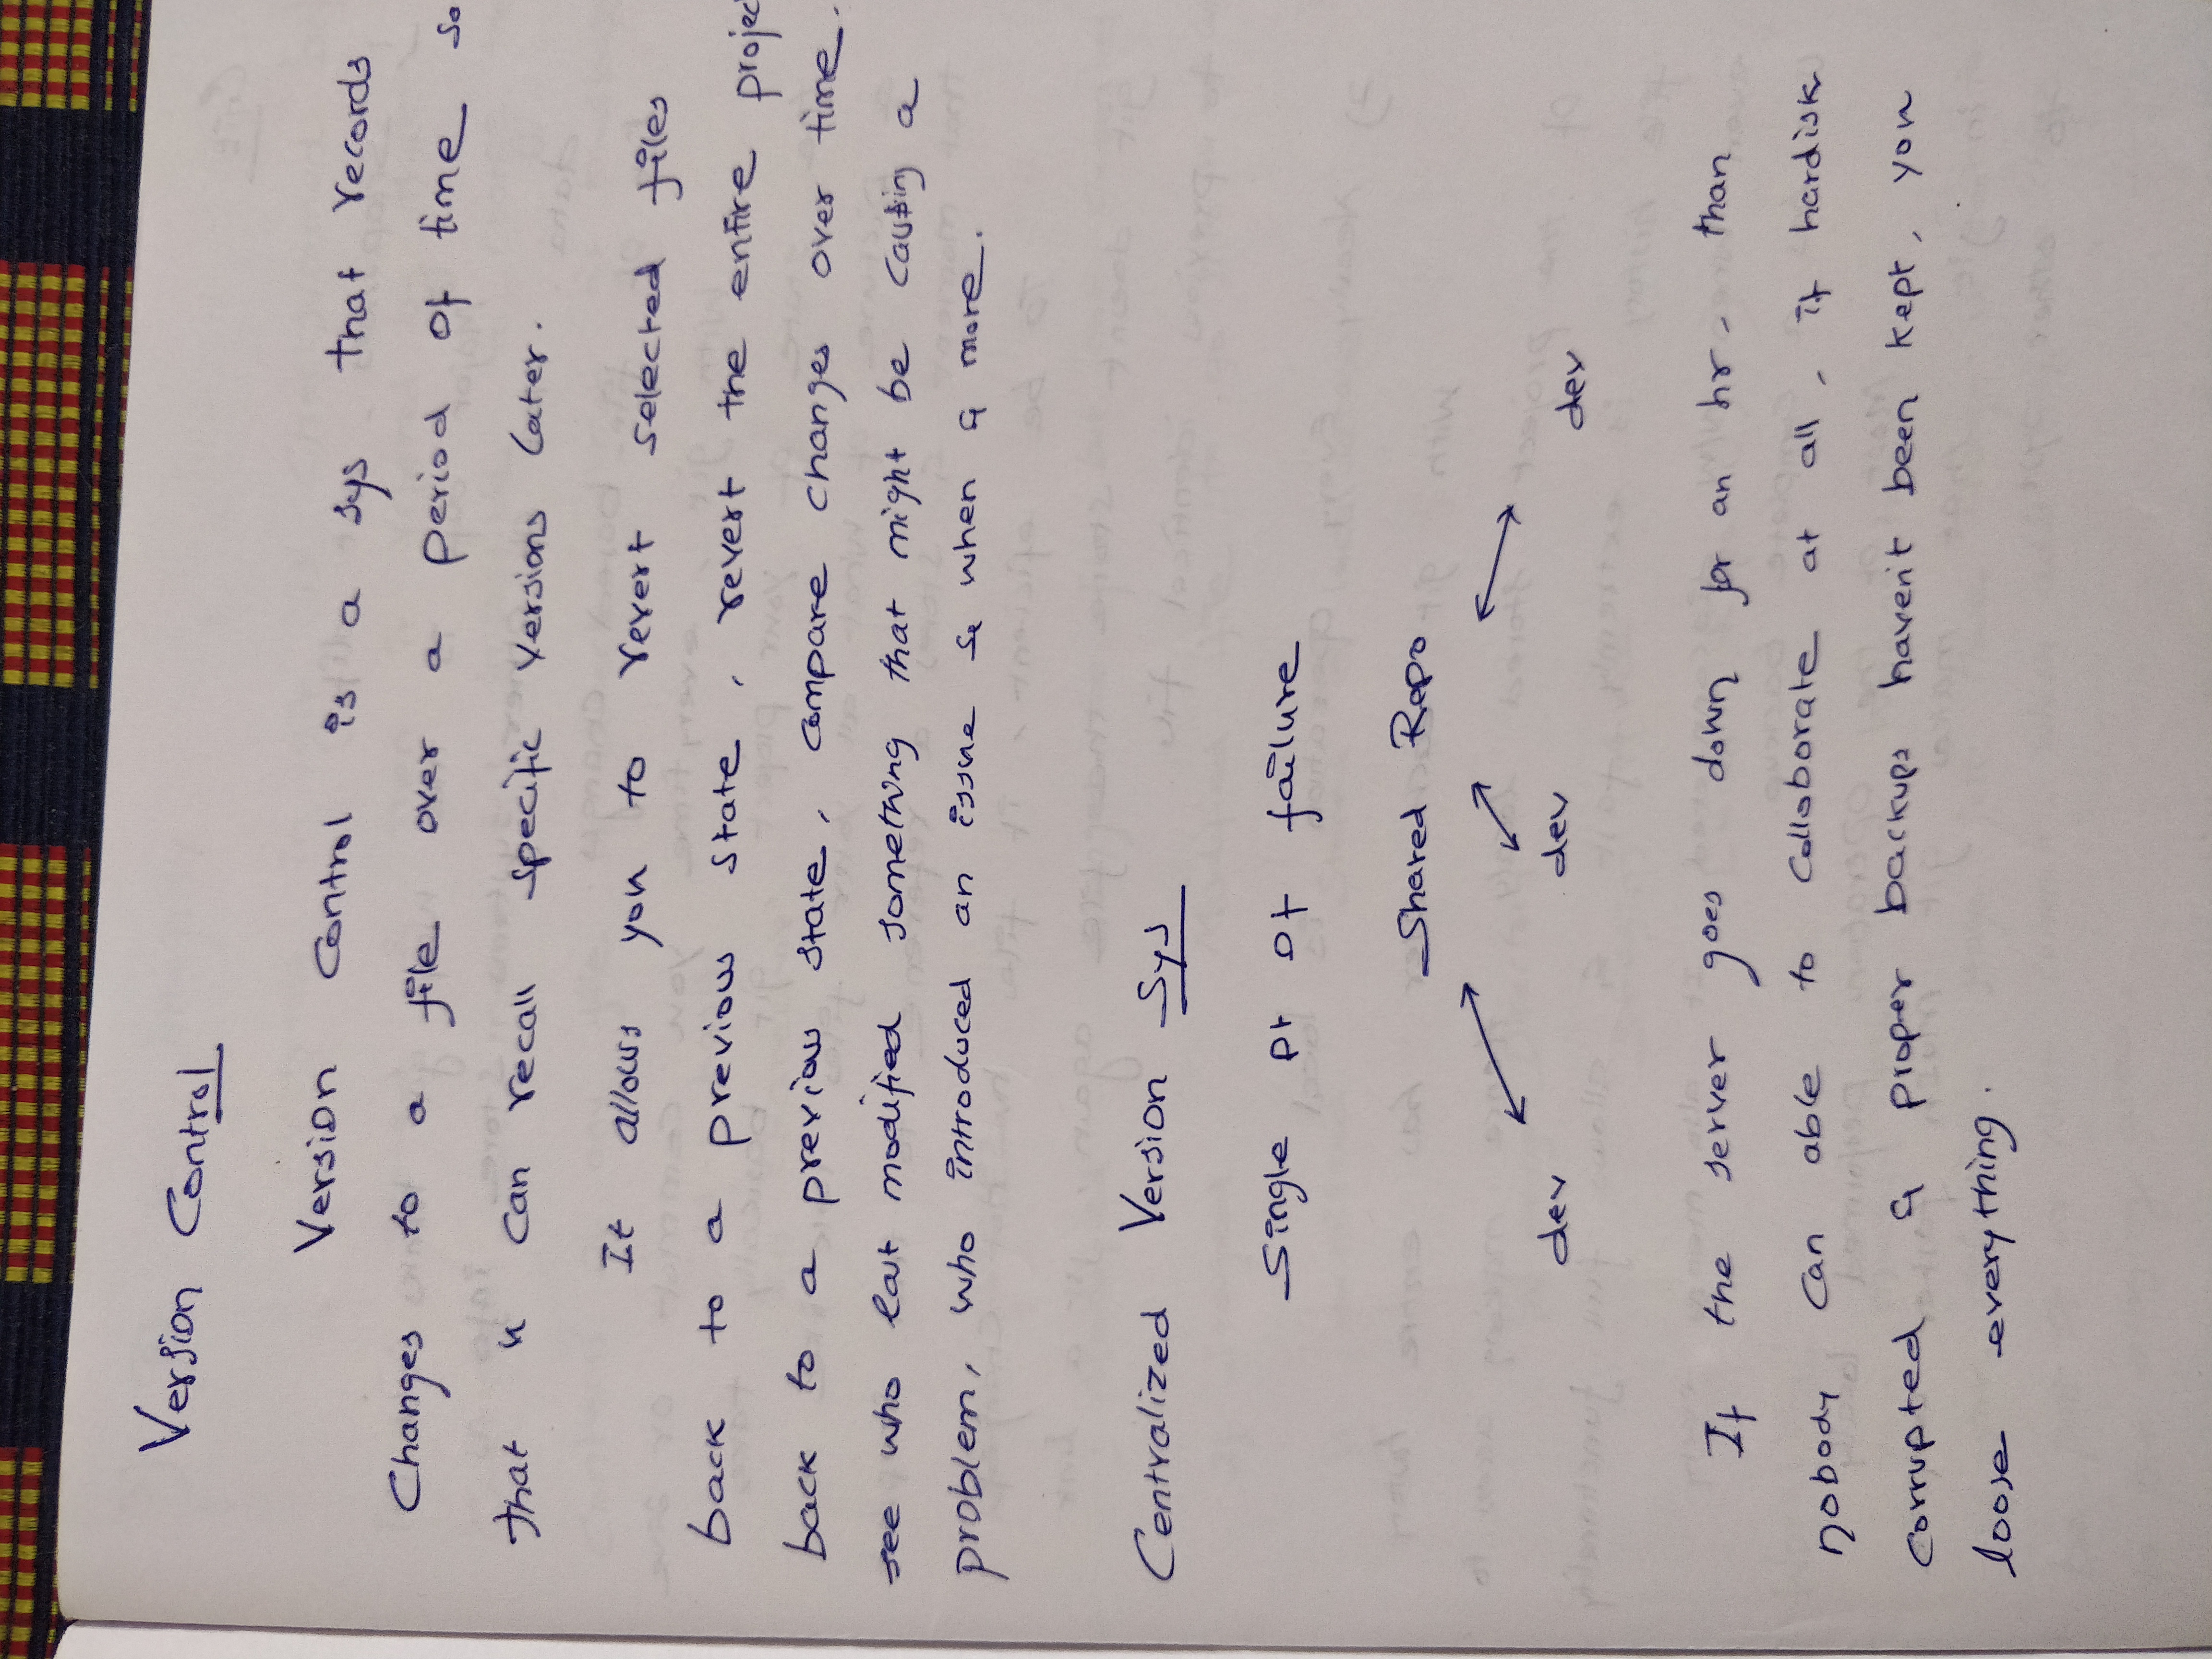 Version Control
Version Control is a sys that records
Changes to a file over a period of time so
that u can recall specific versions later.
It allows you to revert selected files
back to a previous state, revert the entire projec
back to a previous state, compare changes over time.
see who last modified something that might be causing a
problem, who introduced an issue & when & more.
Centralized Version Sys
Single pt of failure
Shared Repo
dev dev dev
If the server goes down for an hr, than
nobody can able to colloborate at all, if hardisk
corrupted & proper backups haven't been kept, you
loose everything.